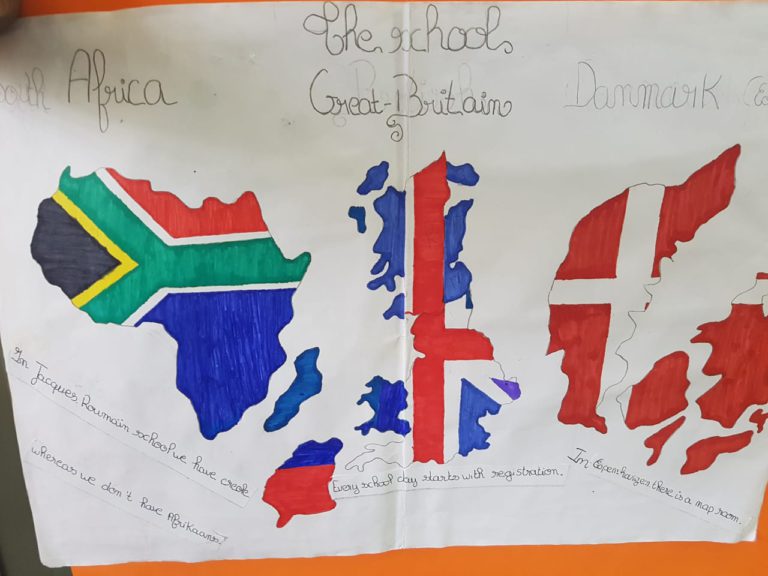 The schools
South Africa
Great-Britain
Danmark
In Jacques Roumain school we have creole
whereas we don't have Afrikaans!
Every school day starts with registration.
In Copenhangen there is a nap room.